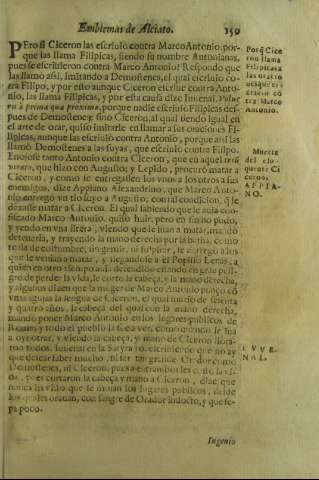 Emblemas de Alciato. 150
PEro si Ciceron las escriuio contra Marco Antonio, por-
que las llama Filipicas, siendo su nombre Antonianas,
pues se escriuieron contra Marco Antonio? Respondo que
las llamò assi, imitando a Demostenes, el qual escriuio co-
tra Filipo, y por esto aunque Ciceron escriue contra Anto-
nio, las llama Filipicas, y por esta causa dize Iuuenal,
à prima qua proxima, porque nadie escriuio Filipicas des-
pues de Demostenes, sino Ciceron, al qual siendo igual en
el arte de orar, quiso imitarle en llamar a sus oraciones Fi-
lipicas, aunque las escriuiò contra Antonio, porque assi las
llamò Demostenes a las suyas, que escriuio contra Filipo.
Enojose tanto Antonio contra Ciceron, que en aquel
que hizo con Augusto, y Lepido, procurò matar a
Ciceron, y como se entregassen los vnos a los otros a sus
enemigos, dize Appiano Alexandrino, que Marco Anto-
nio entregò vn tio suyo a Augusto, con tal condicion, q le
dexasse matar a Ciceron. El qual sabiendo que le auia con-
fiscado Marco Antonio, quiso huir, pero en fin no pudo,
y yendo en vna litera, viendo que le iuan a matar, mandò
detenerla, y trayendo la mano derecha por la barba, como
tenia de costumbre, sin gemir, ni suspirar, se entregò a los
que le venian a matar, y llegandose a el Popilio Lenas, a
quien en otro tiempo auia defendido estando en gran peli-
gro de perder la vida, le cortò la cabeça, y la mano derecha,
y algunos dizen que la muger de Marco Antonio punçò cõ
vnas agujas la lengua de Ciceron, el qual murio de sesenta
y quatro años, la cabeça del qual con la mano derecha,
mandò poner Marco Antonio en los lugares publicos de
Roma, y todo el pueblo la iua a ver, como quando se iua
a oyr orar, y viendo la cabeça, y mano de Ciceron llora-
uan todos. Iuuenal en la Satyra 10. escriuiendo que no ay
que dessear saber mucho, ni ser tan grande Orador como
Demostenes, ni Ciceron, pues a entrambos les costò la vi-
da, pues cortaron la cabeça y mano a Ciceron, dize que
nunca ha sido que se mojan los lugares publicos, desde
los quales orauan, con sangre de Orador indocto, y que se-
pa poco.
Ingenio
Porq Cice
ron llama
Filipicas a
las oracio
nes
tra Marco
Antonio.
Muerte
del elo-
quente Ci
ceron.
APPIA-
NO.
IVVE-
NAL.